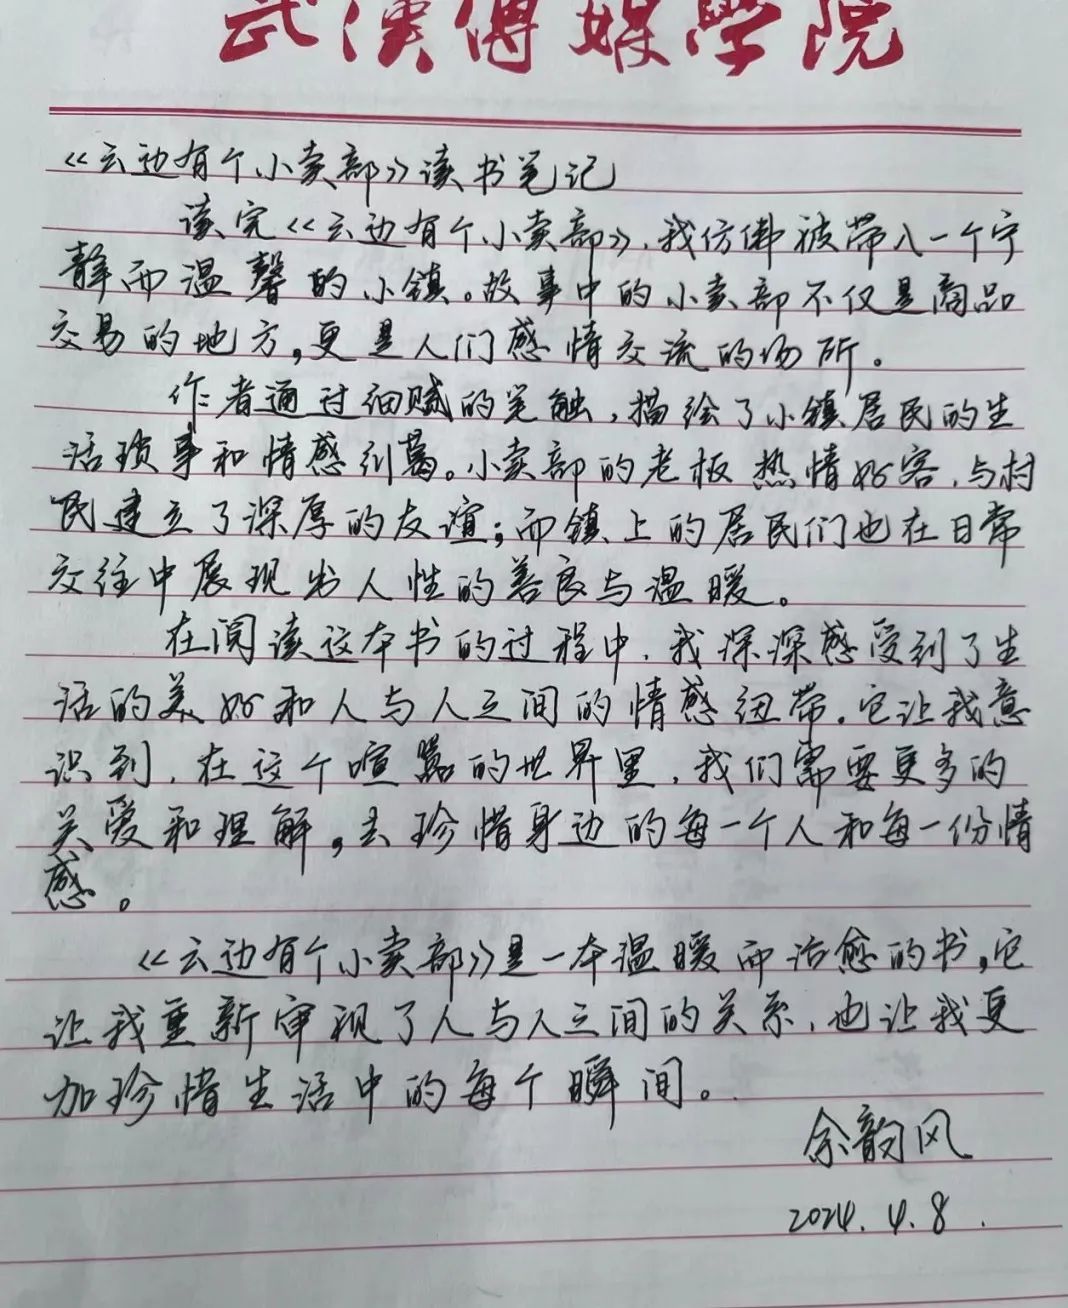 武漢傳媒學院
《云边有个小卖部》读书笔记
读完《云边有个小卖部》，我仿佛被带入一个宁
静而温馨的小镇。故事中的小卖部不仅是商品
交易的地方，更是人们感情交流的场所。
作者通过细腻的笔触，描绘了小镇居民的生
活琐事和情感纠葛。小卖部的老板热情好客，与村
民建立了深厚的友谊；而镇上的居民们也在日常
交往中展现出人性的善良与温暖。
在阅读这本书的过程中，我深深感受到了生
活的美好和人与人之间的情感纽带。它让我意
识到，在这个喧嚣的世界里，我们需要更多的
关爱和理解，去珍惜身边的每一个人和每一份情
感。
《云边有个小卖部》是一本温暖而治愈的书，它
让我重新审视了人与人之间的关系，也让我更
加珍惜生活中的每个瞬间。
余韵风
2024.4.8.